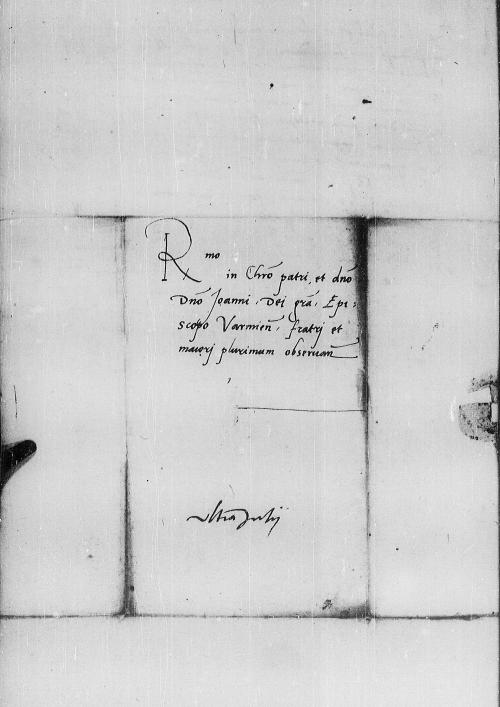 Rmo
in Chrō patri, et dnō
Dnō Joanni, Dei grā, Epi:
scopo Varmieñ, fratri et
maiori plurimum observañ